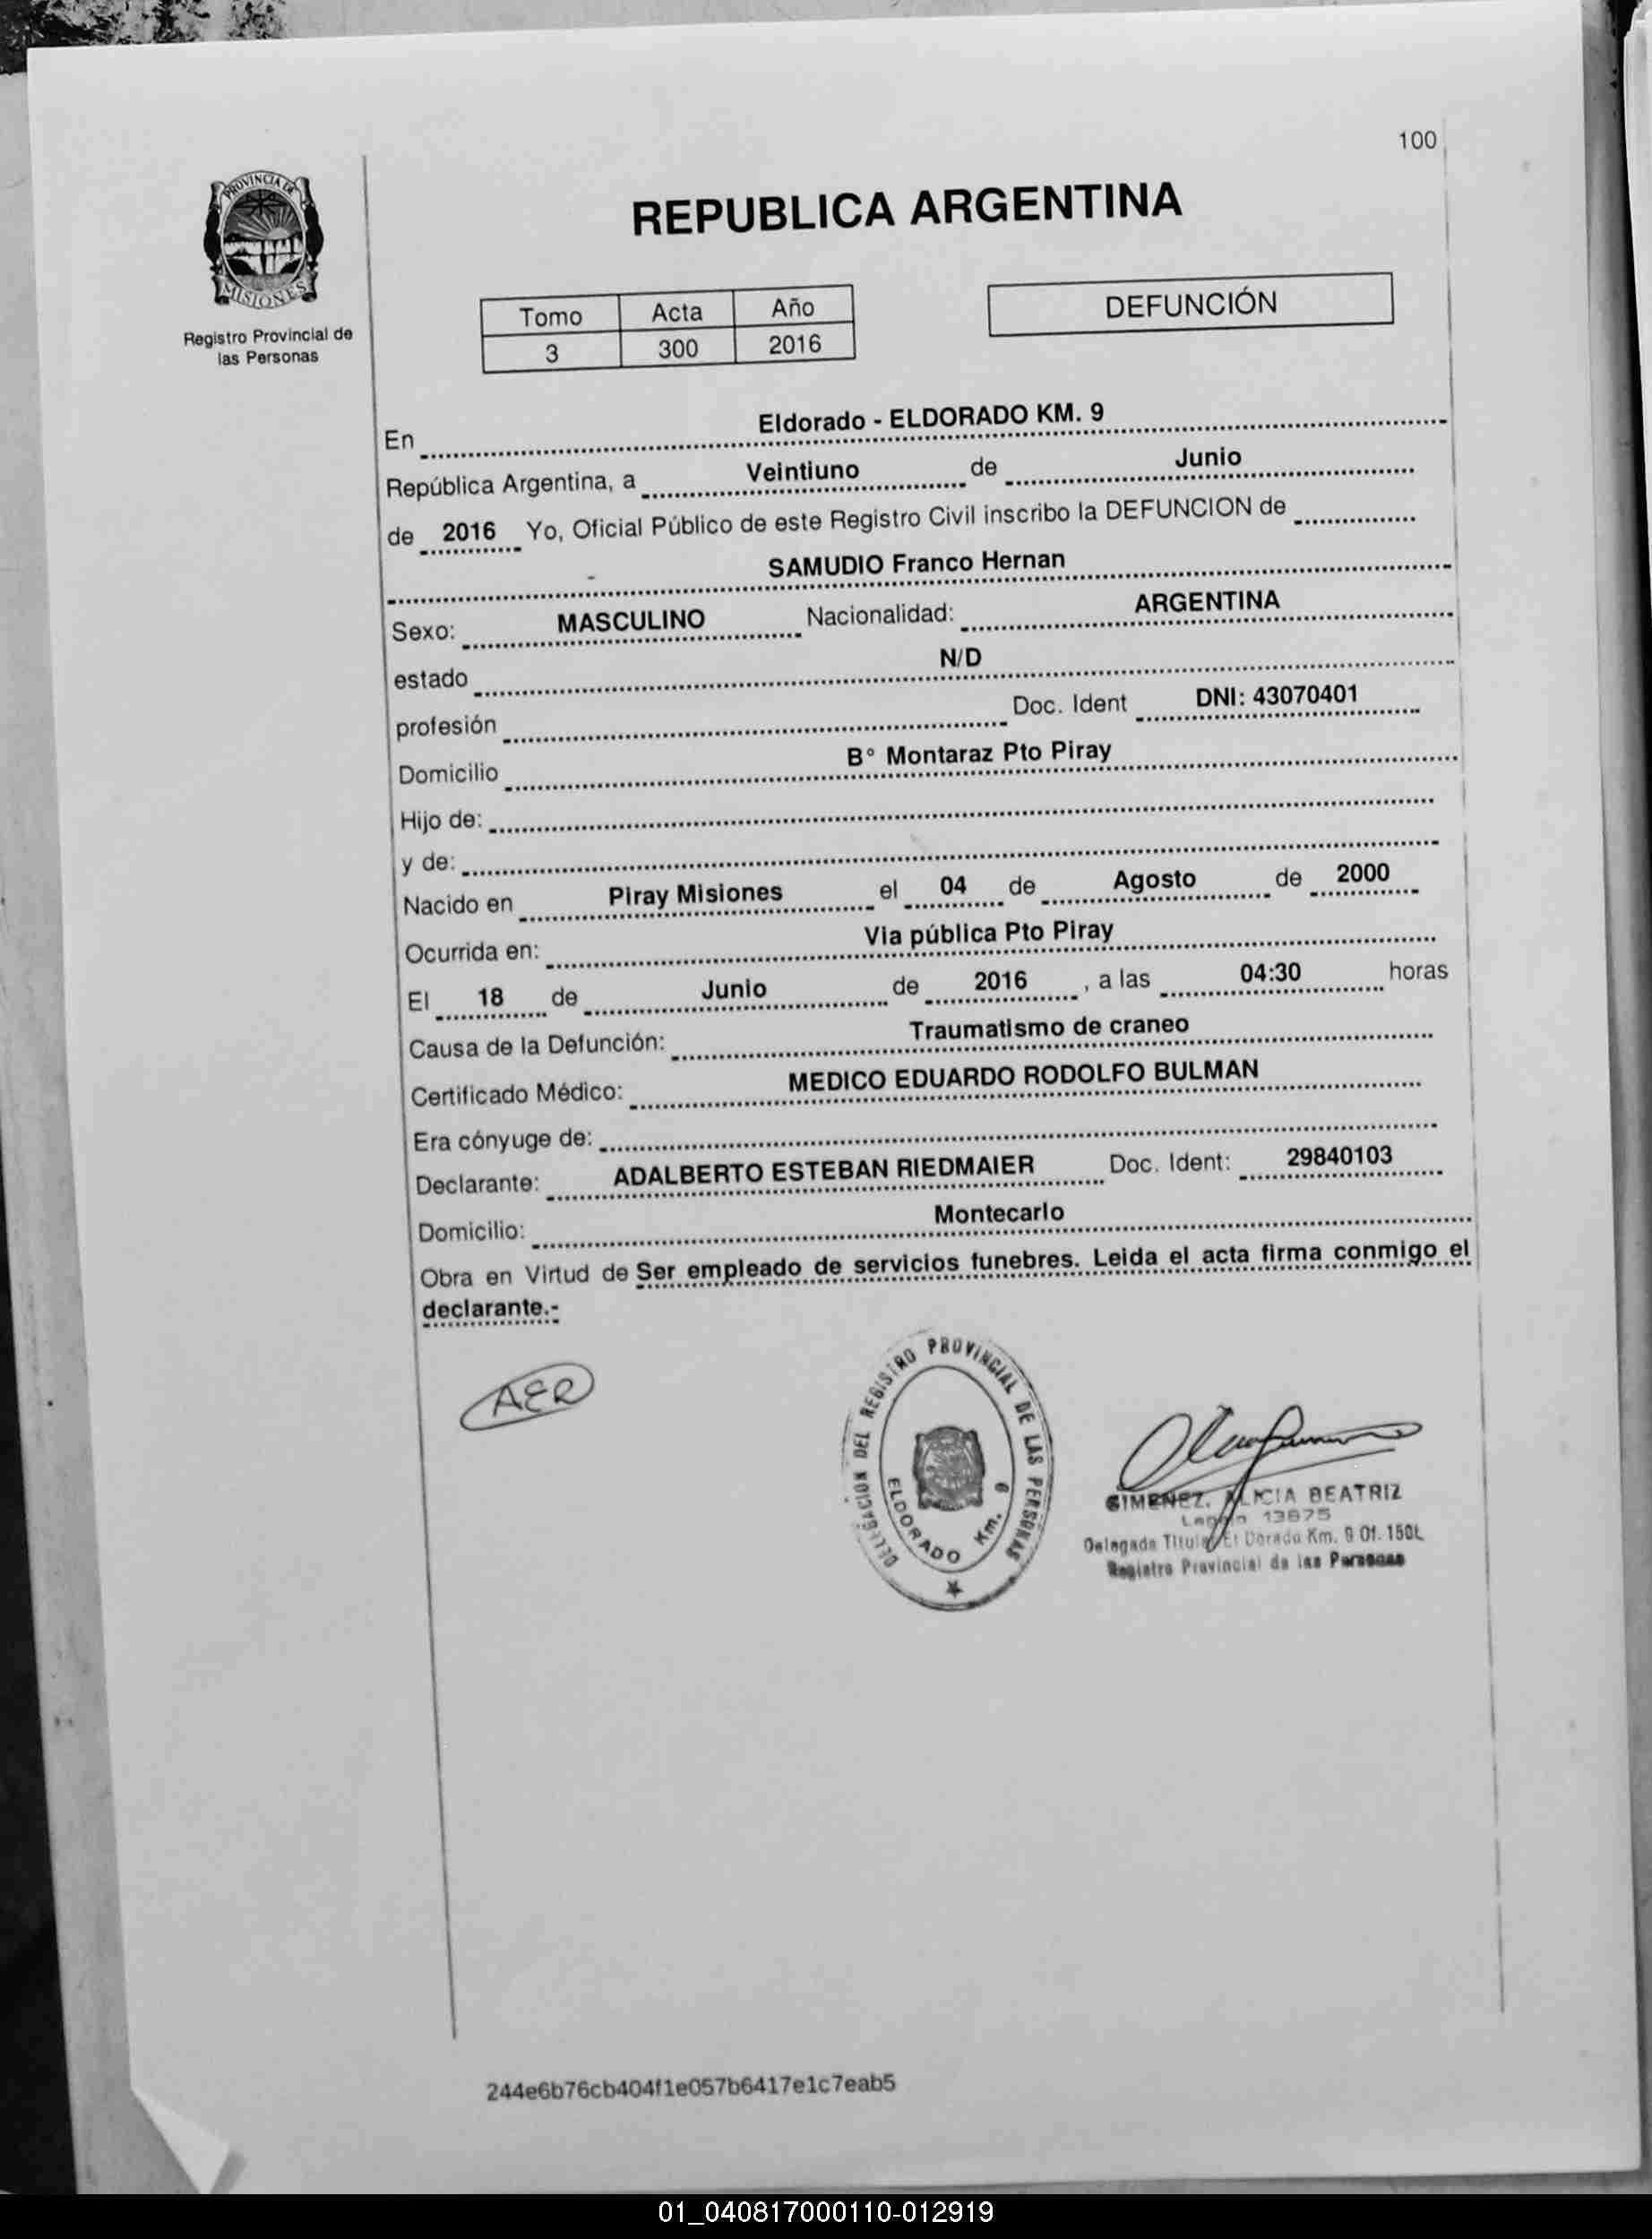 100
PROVINCIA DE
MISIONES
Registro Provincial de
las Personas
REPUBLICA ARGENTINA
Tomo Acta Año
3 300 2016
DEFUNCIÓN
En Eldorado - ELDORADO KM. 9
República Argentina, a Veintiuno de Junio
de 2016 Yo, Oficial Público de este Registro Civil inscribo la DEFUNCION de
SAMUDIO Franco Hernan
Sexo: MASCULINO Nacionalidad: ARGENTINA
estado N/D
profesión Doc. Ident DNI: 43070401
Domicilio B° Montaraz Pto Piray
Hijo de:
y de:
Nacido en Piray Misiones el 04 de Agosto de 2000
Ocurrida en: Via pública Pto Piray
El 18 de Junio de 2016, a las 04:30 horas
Causa de la Defunción: Traumatismo de craneo
Certificado Médico: MEDICO EDUARDO RODOLFO BULMAN
Era cónyuge de:
Declarante: ADALBERTO ESTEBAN RIEDMAIER Doc. Ident: 29840103
Domicilio: Montecarlo
Obra en Virtud de Ser empleado de servicios funebres. Leida el acta firma conmigo el
declarante.-
AER
DELEGACION DEL REGISTRO PROVINCIAL DE LAS PERSONAS
ELDORADO Km. 9
GIMENEZ, ALICIA BEATRIZ
13875
Delegada Titular El Dorado Km. 9 Of.
Registro Provincial de las Personas
244e6b76cb404f1e057b6417e1c7eab5
01_040817000110-012919